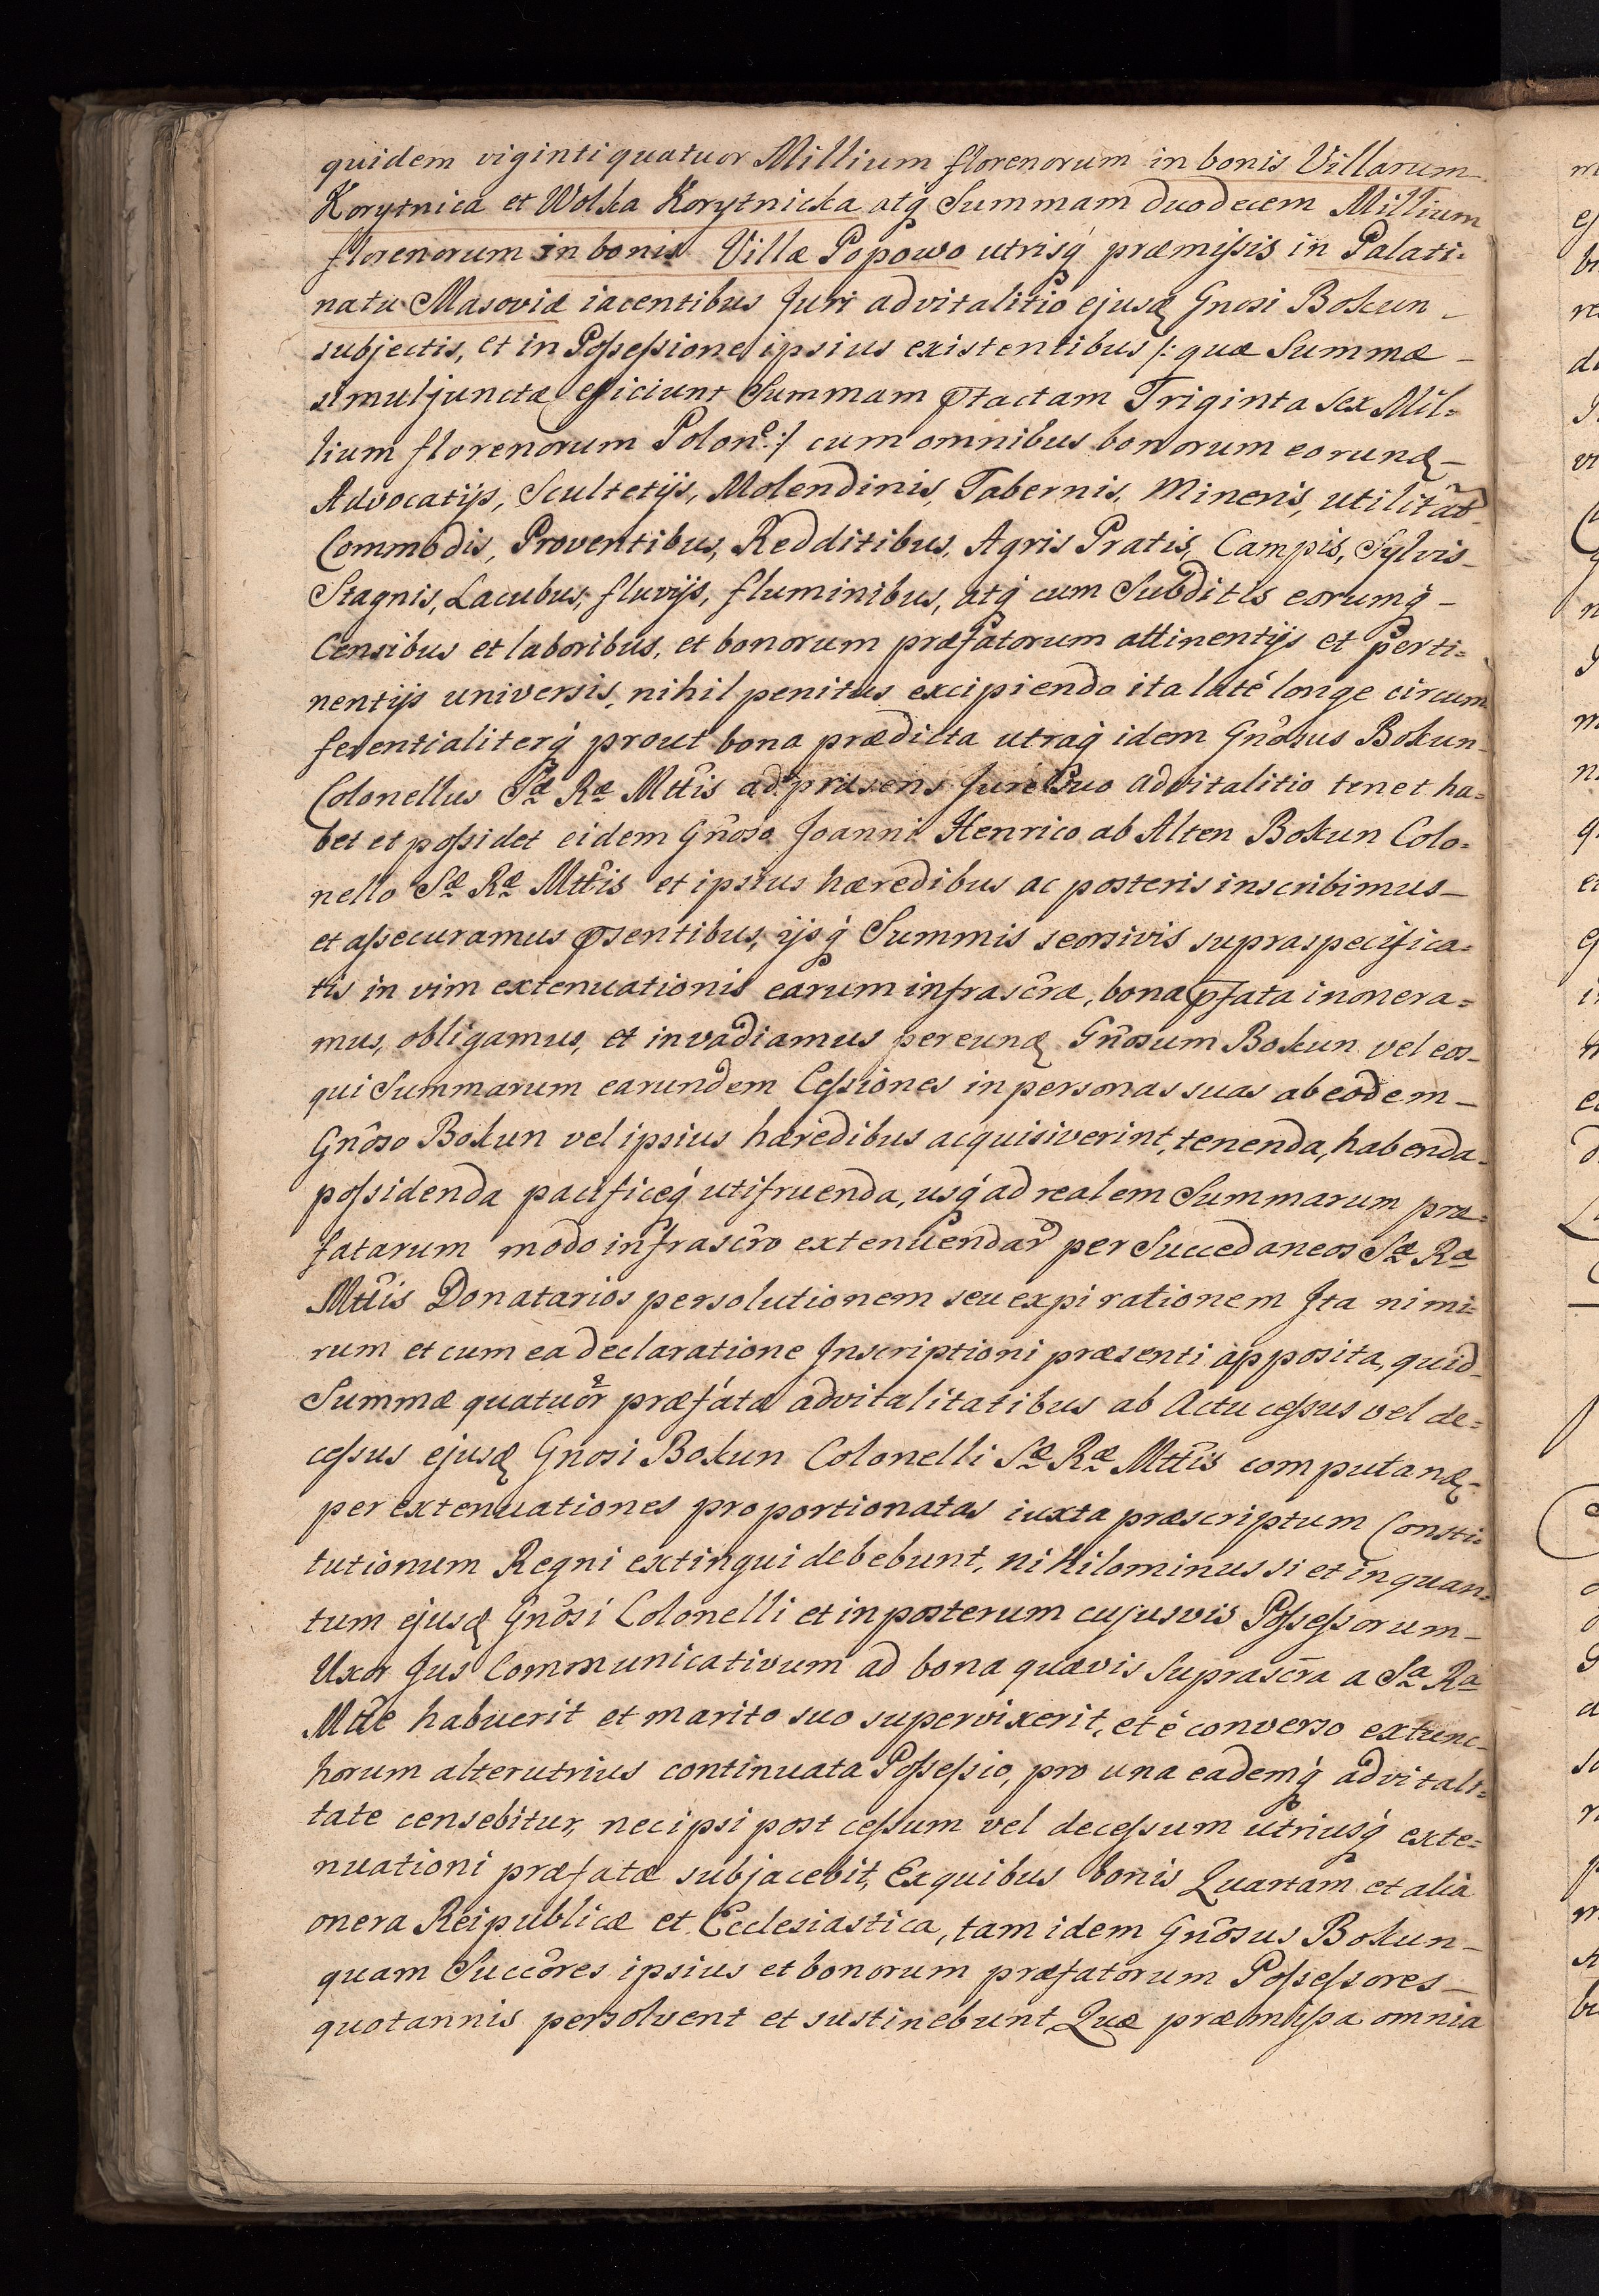 quidem vigintiquatuor Millium florenorum in bonis Villarum
Korytnica et Wolka Korytnicka atq́ Summam duodecem Millium
florenorum in bonis Villæ Popowo utrisq́ præmissis in Palati=
natu Masoviæ iacentibus Juri advitalitio ejusdꝫ Gnosi Bokun _
subjectis, et in Possessione ipsius existentibus /: quæ Summæ _
simul junctæ efficiunt Summam ꝑtactam Triginta sex Mil=
lium florenorum Polon: :/ cum omnibus bonorum eorundꝫ _
Advocatijs, Scultetijs, Molendinis, Tabernis, Mineris, utilitat
Commodis, Proventibus, Redditibus, Agris Pratis, Campis, Sylvis_
Stagnis, Lacubus, fluvijs, fluminibus, atq́ cum Subditis eorumq́ _
Censibus et laboribus, et bonorum præfatorum attinentijs et Perti=
nentijs universis, nihil penitus excipiendo ita laté longe circum
ferentialiterq́ prout bona prædicta utraq́ idem Gnôsus Bokun
Colonellus Sæ Ræ Mttis ad præsens Jure Suo advitalitio tenet ha=
bet et possidet eidem Gnôso Joanni Henrico ab Alten Bokun Colo=
nello Sæ Ræ Mttis et ipsius hæredibus ac posteris inscribimus _
et assecuramus ꝑsentibus, ijsq́ Summis seorsivis supraspecifica=
tis in vim extenuationis earum infrascræ, bona ꝑfata inonera=
mus, obligamus, et invadiamus per eundꝫ Gnôsum Bokun vel eos_
qui Summarum earundem Cessiones in personas suas ab eodem _
Gnôso Bokun vel ipsius hæredibus acquisiverint, tenenda, habenda
possidenda pacificeq́ utifruenda, usq́ ad realem Summarum præ=
fatarum modo infrascro extenuendar per Succedaneos Sæ Ræ
Mttis Donatarios persolutionem seu expirationem Jta nimi=
rum et cum ea declaratione Jnscriptioni præsenti apposita, quid
Summæ quatuor præfatæ advitalitatibus ab Actu cessus vel de=
cessus ejusdꝫ Gnosi Bokun Colonelli Sæ Ræ Mttis computandꝫ
per extenuationes proportionatas iuxta præscriptum Consti=
tutionum Regni extingui debebunt, nihilominus si et inquan=
tum ejusdꝫ Gnôsi Colonelli et in posterum cujusvis Possessorum _
Uxor Jus Communicativum ad bona quævis suprascra a Sa Ra
Mtte habuerit et marito suo supervixerit, et è converso extunc_
horum alterutrius continuata Possessio, pro una eademq́ advitali=
tate censebitur, nec ipsi post cessum vel decessum utriusq́ exte=
nuationi præfatæ subjacebit, Ex quibus bonis Quartam et alia
onera Reipublicæ et Ecclesiastica, tam idem Gnôsus Bokun _
quam Succôres ipsius et bonorum præfatorum Possessores _
quotannis persolvent et sustinebunt, Quæ præmissa omnia